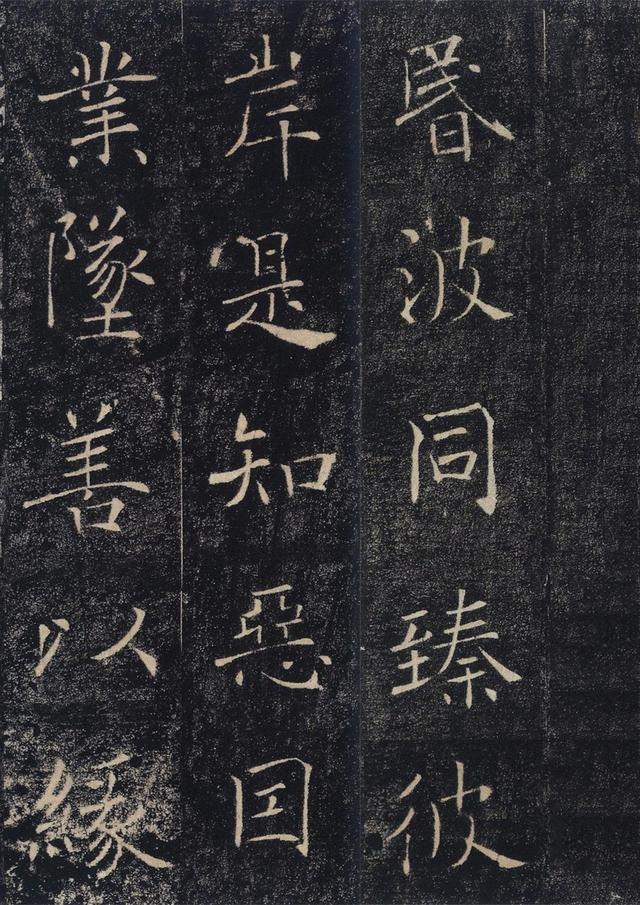 昬波同臻彼
岸是知惡囙
業墜善以緣